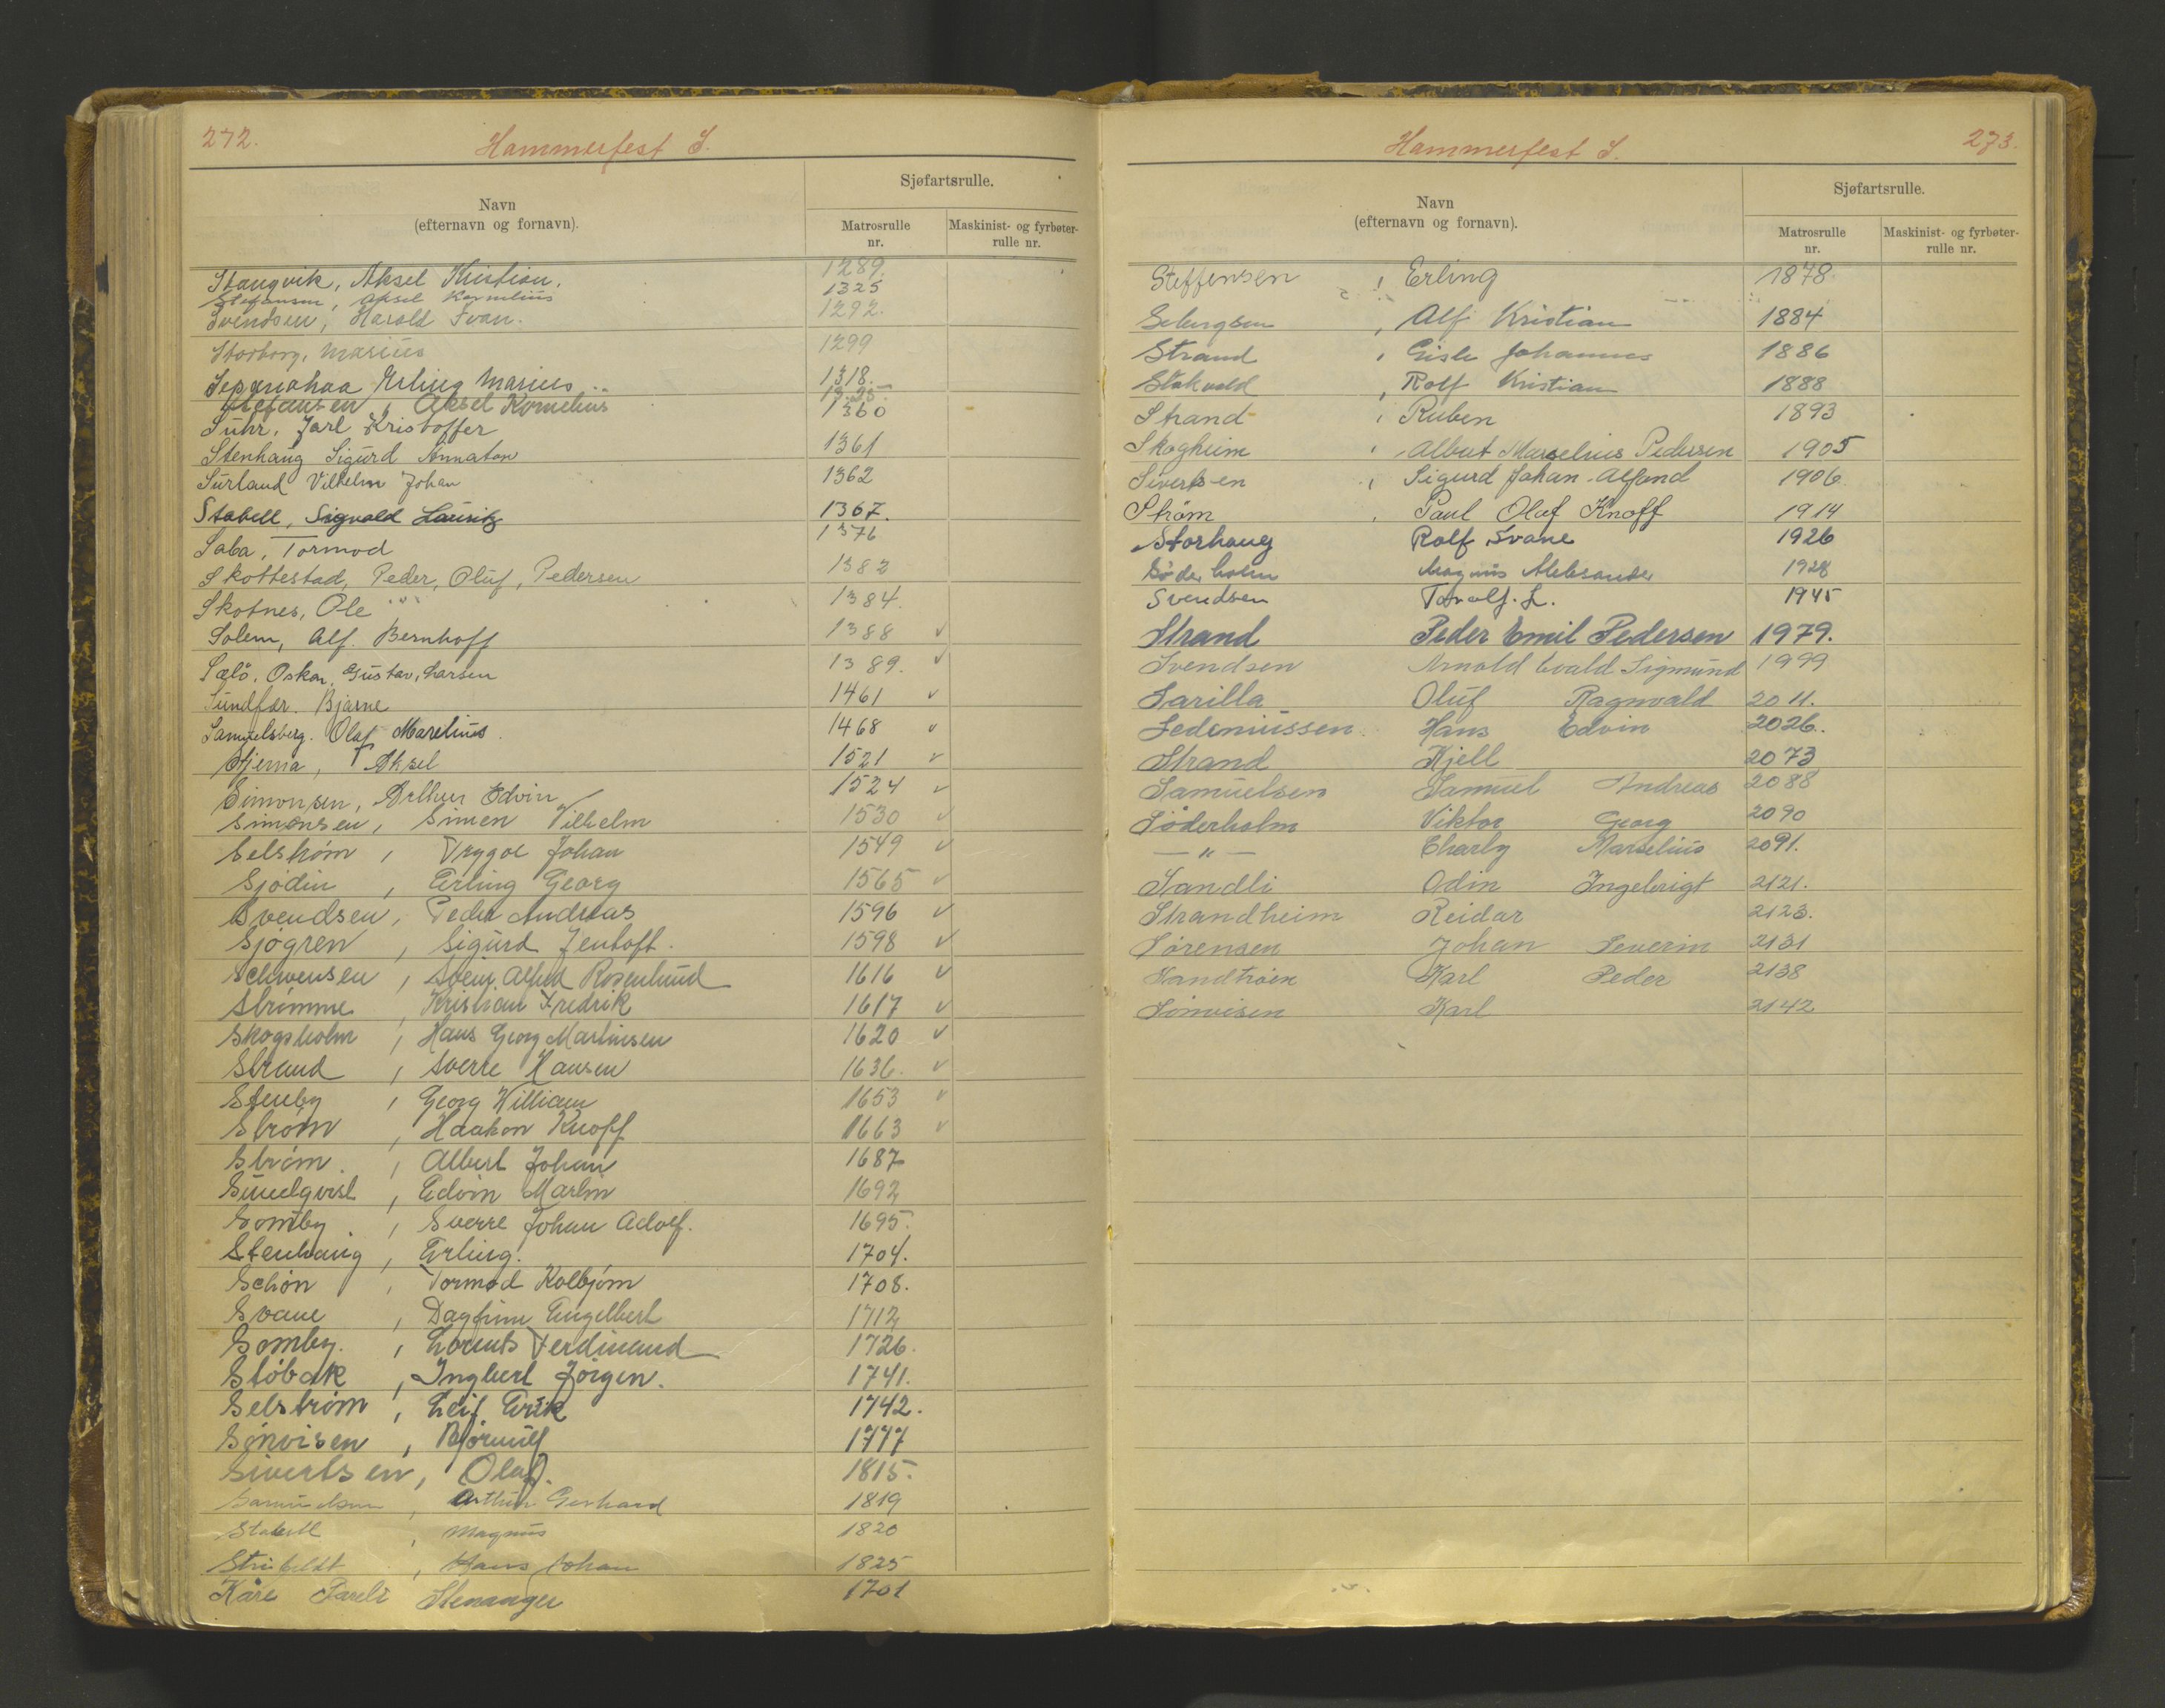 272.
Hammerfest S.
Navn
(efternavn og fornavn).
Sjøfartsrulle.
Matrosrulle
nr.
Maskinist- og fyrbøter-
rulle nr.
Stangvik, Aksel Kristian. 1289.
Stefansen, Aksel Kornelius 1325
Svendsen, Harald Ivan. 1292.
Storborg, Marius 1299
Erling Marius 1318.
Stefansen, Aksel Kornelius 1325
Suhr, Jarl Kristoffer 1360
Stenhaug Sigurd Annaton 1361
Surland Vilhelm Johan 1362
Stabell, Sigvald Lauritz 1367.
Saba, Tormod 1376
Skottestad, Peder, Oluf, Pedersen 1382
Skotnes, Ole 1384.
Solem, Alf. Bernhoff 1388 ✓
Sælö, Oskar, Gustav, Larsen 1389. ✓
Sundfær. Bjarne 1461 ✓
Samuelsberg. Olaf Marelius. 1468 ✓
Stjerna, Aksel 1521 ✓
Simonsen, Arthur Edvin 1524 ✓
Simonsen, Simen Vilhelm 1530 ✓
Selstrøm, Trygve Johan 1549 ✓
Sjødin, Erling Georg 1565 ✓
Svendsen, Peder Andreas 1596 ✓
Sjøgren, Sigurd Jentoft. 1598 ✓
Schwensen, Svein Alfred Rosenlund 1616 ✓
Strømme, Kristian Fredrik 1617 ✓
Skogsholm, Hans Georg Martinsen 1620 ✓
Strand, Sverre Hansen 1636. ✓
Stenby, Georg William 1653 ✓
Strøm, Haakon Knoff 1663 ✓
Strøm, Albert Johan 1687
Sundqvist, Edvin Martin 1692
Somby, Sverre Johan Adolf. 1695.
Stenhaug, Erling. 1704.
Schøn, Tormod Kolbjørn 1708.
Svane, Dagfinn Engelbert 1712
Somby, Lorents Ferdinand 1726.
Støbak, Ingbert Jørgen. 1741.
Selstrøm, Leif Erik 1742.
Sønvisen, Bjørnulf 1777
Sivertsen, Olaf. 1815.
Samuelsen, Arthur Gerhard 1819
Stabell, Magnus 1820
Strifeldt, Hans Johan 1825
Kåre Pareli Stenanger 1701
Hammerfest S.
273.
Navn
(efternavn og fornavn).
Sjøfartsrulle.
Matrosrulle
nr.
Maskinist- og fyrbøter-
rulle nr.
Steffensen, Erling 1878.
, Alf Kristian 1884
Strand, Gisle Johannes 1886
Stokvold, Rolf Kristian 1888
Strand, Ruben 1893
Skogheim, Albert Marselius Pedersen 1905
Sivertsen, Sigurd Johan Alfond 1906
Strøm, Paul Olaf Knoff 1914
Storhaug Rolf Svane 1926
Söderholm Magnus Aleksander 1928
Svendsen Torolf. L. 1945
Strand Peder Emil Pedersen 1979.
Svendsen Arnold Evald Sigmund 1999
Sarilla Oluf Ragnvald 2011.
Sedeniussen Hans Edvin 2026.
Strand Kjell 2073
Samuelsen Samuel Andreas 2088
Søderholm Viktor Georg 2090
— " — Charly Marselius 2091.
Sandli Odin Ingebrigt 2121.
Strandheim Reidar 2123.
Sørensen Johan Severin 2131
Sandtrøen Karl Peder 2138
Sønvisen Karl 2142